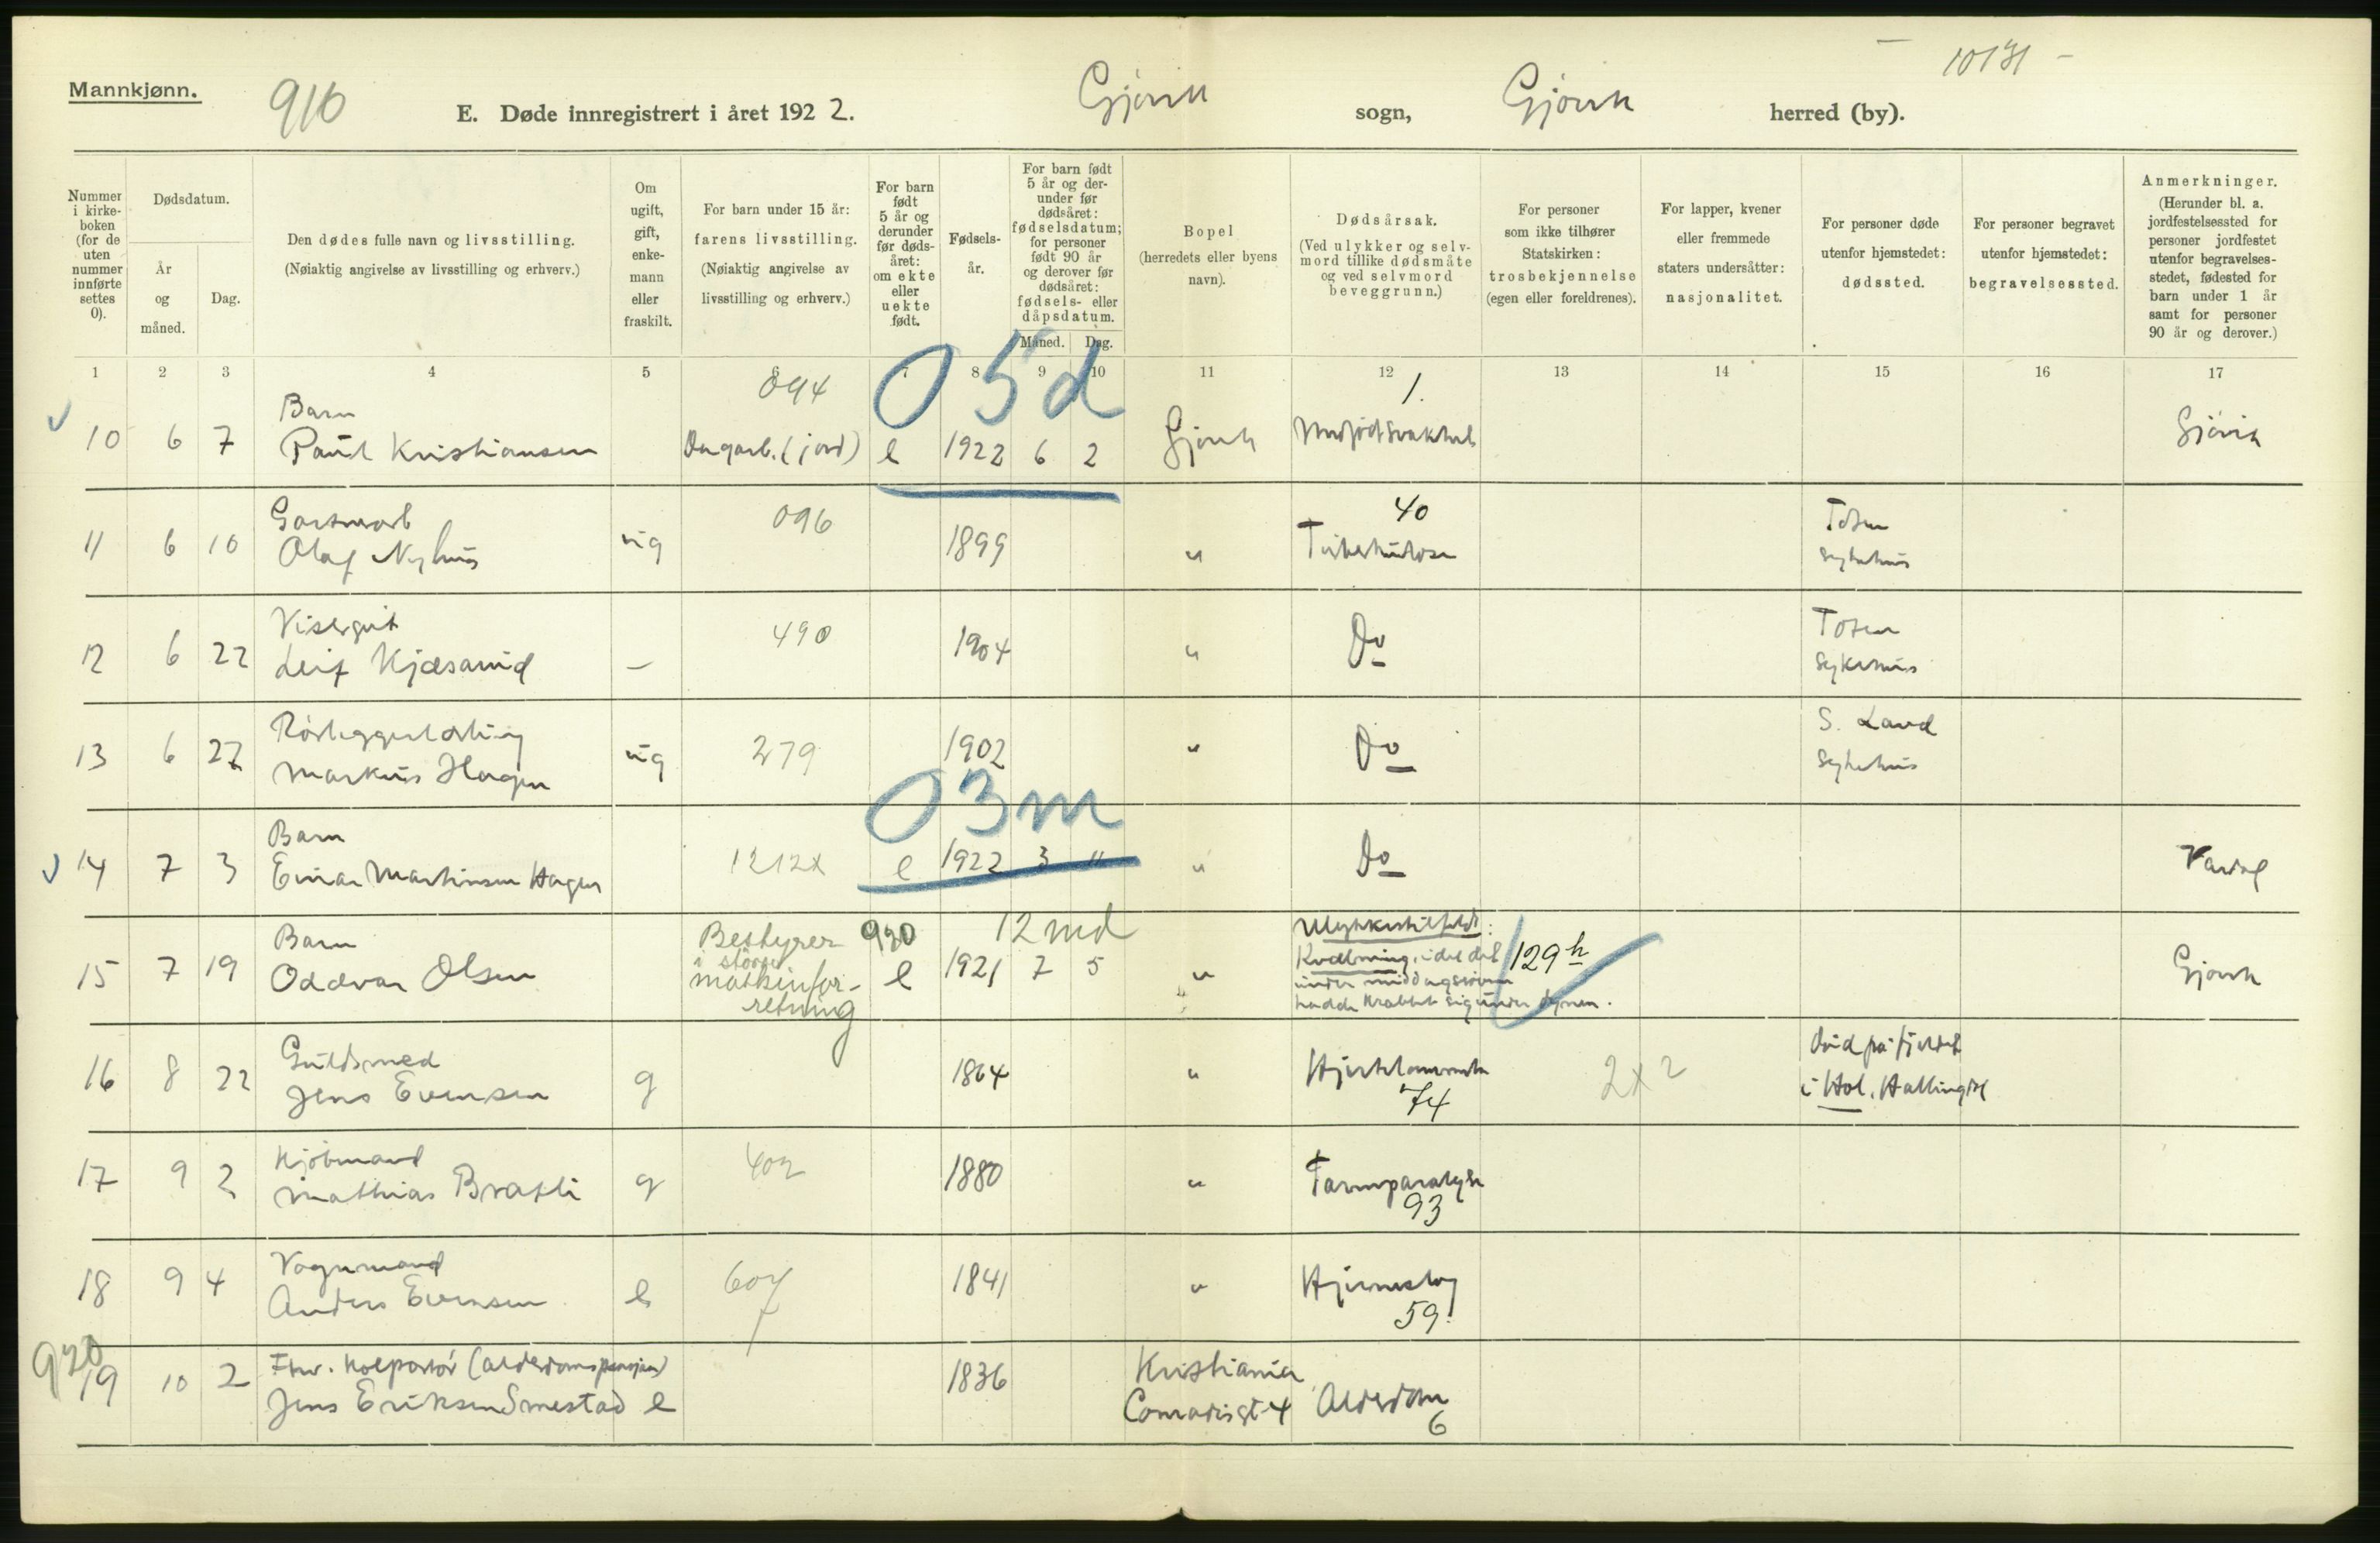 Mannkjønn.
910
E. Døde innregistrert i året 1922.
Gjøvik sogn, Gjøvik herred (by).
10131
Nummer i kirkeboken (for de uten nummer innførte settes 0).
Dødsdatum.
År og måned.
Dag.
Den dødes fulle navn og livsstilling.
(Nøiaktig angivelse av livsstilling og erhverv.)
Om ugift, gift, enkemann eller fraskilt.
For barn under 15 år: farens livsstilling.
(Nøiaktig angivelse av livsstilling og erhverv.)
For barn født 5 år og derunder før dødsåret: om ekte eller uekte født.
Fødselsår.
For barn født 5 år og derunder før dødsåret: fødselsdatum; for personer født 90 år og derover før dødsåret: fødsels- eller dåpsdatum.
Måned. Dag.
Bopel
(herredets eller byens navn).
Dødsårsak.
(Ved ulykker og selvmord tillike dødsmåte og ved selvmord beveggrunn.)
For personer som ikke tilhører Statskirken: trosbekjennelse (egen eller foreldrenes).
For lapper, kvener eller fremmede staters undersåtter: nasjonalitet.
For personer døde utenfor hjemstedet: dødssted.
For personer begravet utenfor hjemstedet: begravelsessted.
Anmerkninger.
(Herunder bl. a. jordfestelsessted for personer jordfestet utenfor begravelsesstedet, fødested for barn under 1 år samt for personer 90 år og derover.)
1 2 3 4 5 6 7 8 9 10 11 12 13 14 15 16 17
Barn 094 0 5 d 1.
10 6 7 Paul Kristiansen Dagarb. (jord) e 1922 6 2 Gjøvik Gjøvik
096 40 Toten
11 6 10 Olaf Nyhus ug 1899 " Tuberkulose sykehus
Visergut 490 Toten
12 6 22 Leif — 1904 " Do sykehus
279 S. Land
13 6 22 Markus Hagen ug 1902 " Do sykehus
Barn 03m
14 7 3 Einar Martinsen Hagen 1212x e 1922 3 11 " Do Vardal
Barn Bestyrer 920 12 md Ulykkestilfelde:
15 7 19 Oddvar Olsen i større matkinforretning e 1921 7 5 " Kvælning, idet det 129h Gjøvik
under middagssøvnen
hadde krabbet sig under dynen.
Guldsmed Død på fjeldet
16 8 22 Jens Evensen g 1864 " 74 2x2 i Hol, Hallingdal
Kjøbmand 402
17 9 2 Mathias Bratli g 1880 " Tarmparalyse
93
Vognmand 607
18 9 4 Anders Evensen e 1841 " Hjerneslag
59.
920 Fhv. kolportør (alderdomspensjon) Kristiania
19 10 2 Jens Eriksen Smestad e 1836 Conradisgt 4 Alderdom
6